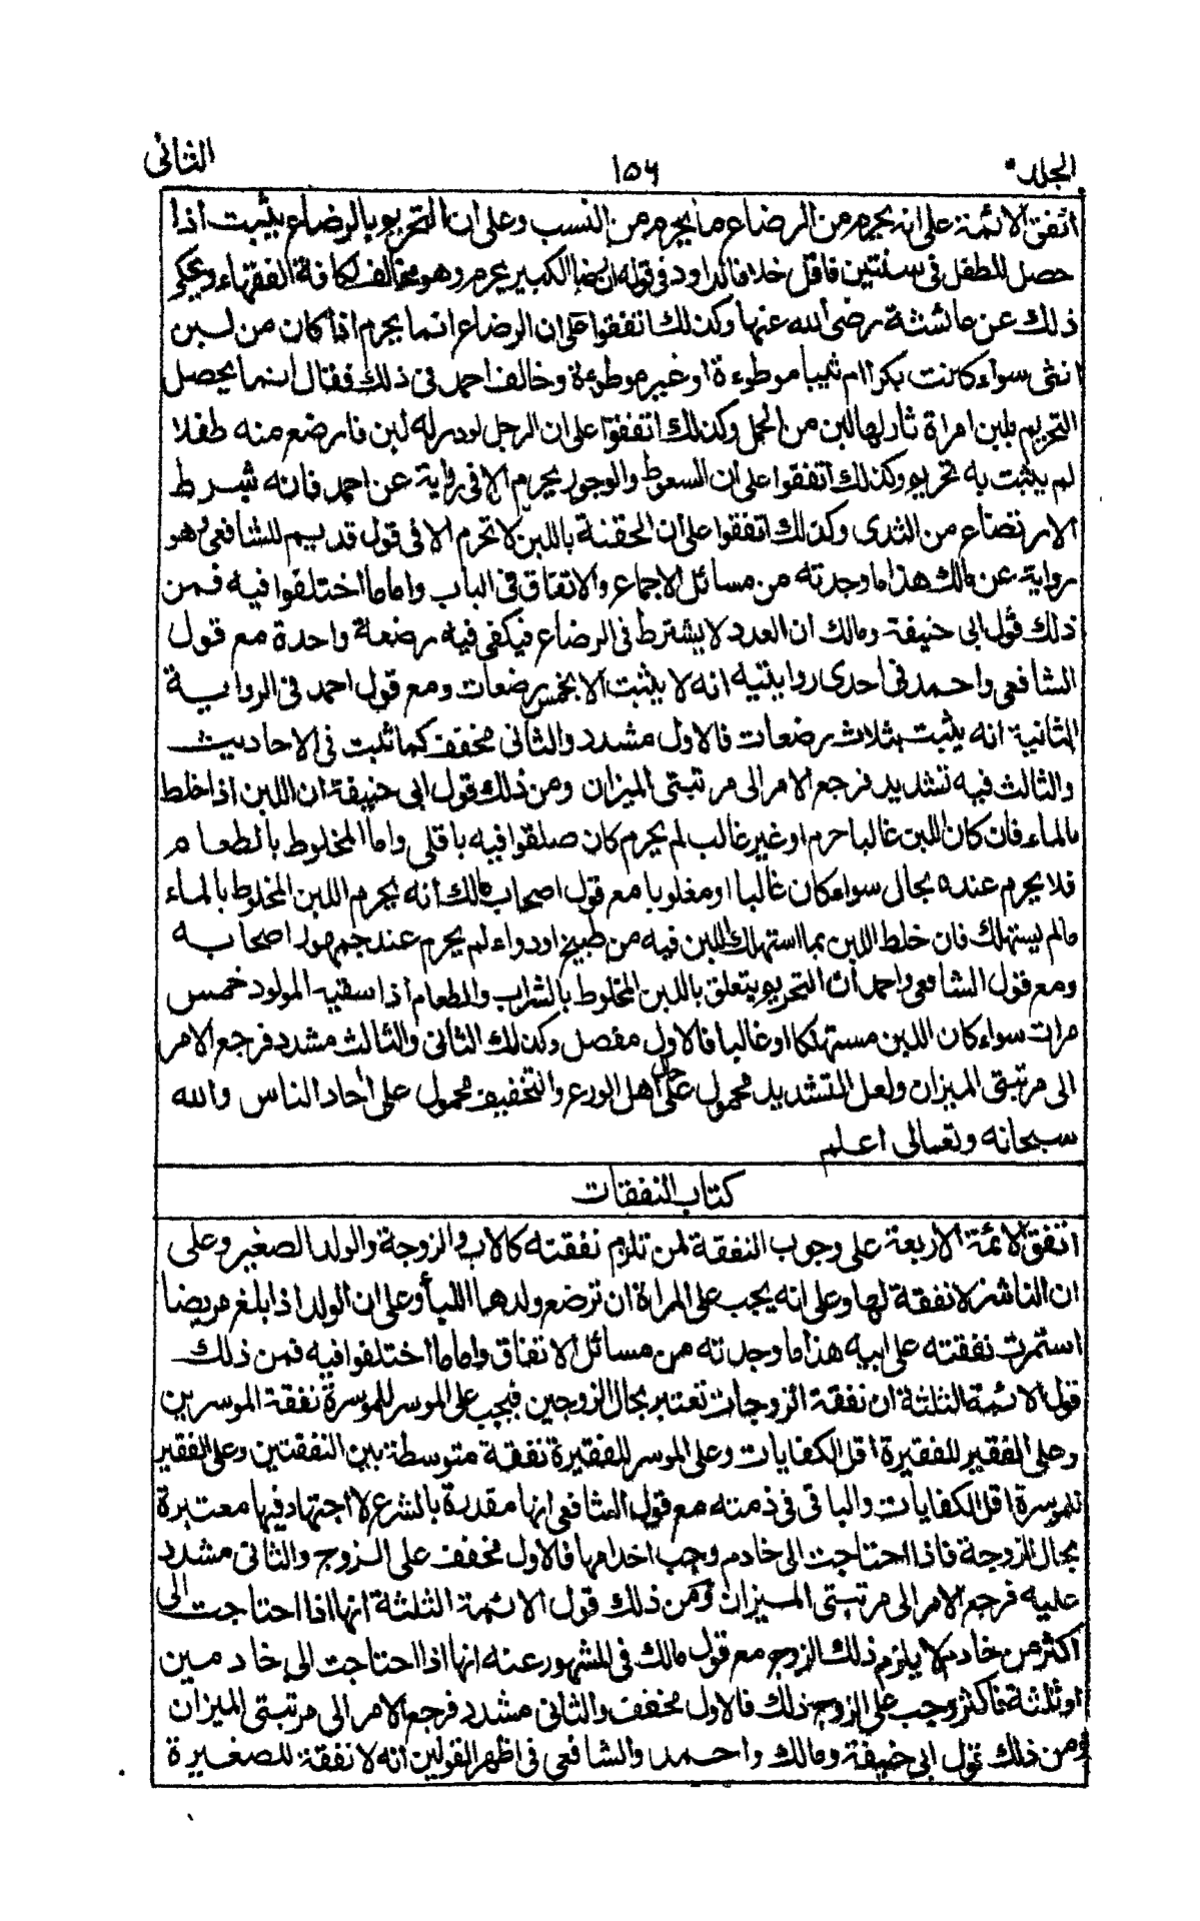 الجلد ١٥٦ الثانى
اتفق الائمة على انه يحرم من الرضاع ما يحرم من النسب وعلى ان التحريم بالرضاع يثبت اذا
حصل للطفل فى سنتين فاقل خلافا لداود فى قوله ان رضاع الكبير يحرم وهو مخالف لكافة الفقهاء ويحكى
ذلك عن عائشة رضى الله عنها وكذلك اتفقوا على ان الرضاع انما يحرم اذا كان من لبن
انثى سواء كانت بكرا ام ثيبا موطوءة او غير موطوءة وخالف احمد فى ذلك فقال انما يحصل
التحريم بلبن امراة ثار لها لبن من الحمل وكذلك اتفقوا على ان الرجل لو در له لبن فارضع منه طفلا
لم يثبت به تحريم وكذلك اتفقوا على ان السعوط والوجور يحرم الا فى رواية عن احمد فانه شرط
الارتضاع من الثدى وكذلك اتفقوا على ان الحقنة باللبن لا تحرم الا فى قول قديم للشافعى وهو
رواية عن مالك هذا ما وجدته من مسائل الاجماع والاتفاق فى الباب واما ما اختلفوا فيه فمن
ذلك قول ابى حنيفة ومالك ان العدد لا يشترط فى الرضاع فيكفى فيه رضعة واحدة مع قول
الشافعى واحمد فى احدى روايتيه انه لا يثبت الا بخمس رضعات ومع قول احمد فى الرواية
الثانية انه يثبت بثلاث رضعات فالاول مشدد والثانى مخفف كما ثبت فى الاحاديث
والثالث فيه تشديد فرجع الامر الى مرتبتى الميزان ومن ذلك قول ابى حنيفة ان اللبن اذا خلط
بالماء فان كان اللبن غالبا حرم او غير غالب لم يحرم كان صلقوا فيه باقلى واما المخلوط بالطعام
فلا يحرم عنده بحال سواء كان غالبا او مغلوبا مع قول اصحاب مالك انه يحرم اللبن المخلوط بالماء
مالم يستهلك فان خلط اللبن بما استهلك اللبن فيه من طبيخ او دواء لم يحرم عند جمهور اصحابه
ومع قول الشافعى واحمد ان التحريم يتعلق باللبن المخلوط بالشراب والطعام اذا سقيه المولود خمس
مرات سواء كان اللبن مستهلكا او غالبا فالاول مفصل وكذلك الثانى والثالث مشدد فرجع الامر
الى مرتبتى الميزان ولعل التشديد محمول على حال اهل الورع والتخفيف محمول على أحاد الناس والله
سبحانه وتعالى اعلم
كتاب النفقات
اتفق الائمة الاربعة على وجوب النفقة لمن تلزم نفقته كالاب والزوجة والولد الصغير وعلى
ان الناشز لا نفقة لها وعلى انه يجب على المراة ان ترضع ولدها اللبأ وعلى ان الولد اذا بلغ مريضا
استمرت نفقته على ابيه هذا ما وجدته من مسائل الاتفاق واما ما اختلفوا فيه فمن ذلك
قول الائمة الثلثة ان نفقة الزوجات تعتبر بحال الزوجين فيجب على الموسر للموسرة نفقة الموسرين
وعلى الفقير للفقيرة اقل الكفايات وعلى الموسر للفقيرة نفقة متوسطة بين النفقتين وعلى الفقير
للموسرة اقل الكفايات والباقى فى ذمته مع قول الشافعى انها مقدرة بالشرع لا اجتهاد فيها معتبرة
بحال الزوجة فاذا احتاجت الى خادم وجب اخدامها فالاول مخفف على الزوج والثانى مشدد
عليه فرجع الامر الى مرتبتى الميزان ومن ذلك قول الائمة الثلثة انها اذا احتاجت الى
اكثر من خادم لا يلزم ذلك الزوج مع قول مالك فى المشهور عنه انها اذا احتاجت الى خادمين
او ثلثة فاكثر وجب على الزوج ذلك فالاول مخفف والثانى مشدد فرجع الامر الى مرتبتى الميزان
ومن ذلك قول ابى حنيفة ومالك واحمد والشافعى فى اظهر القولين انه لا نفقة للصغيرة